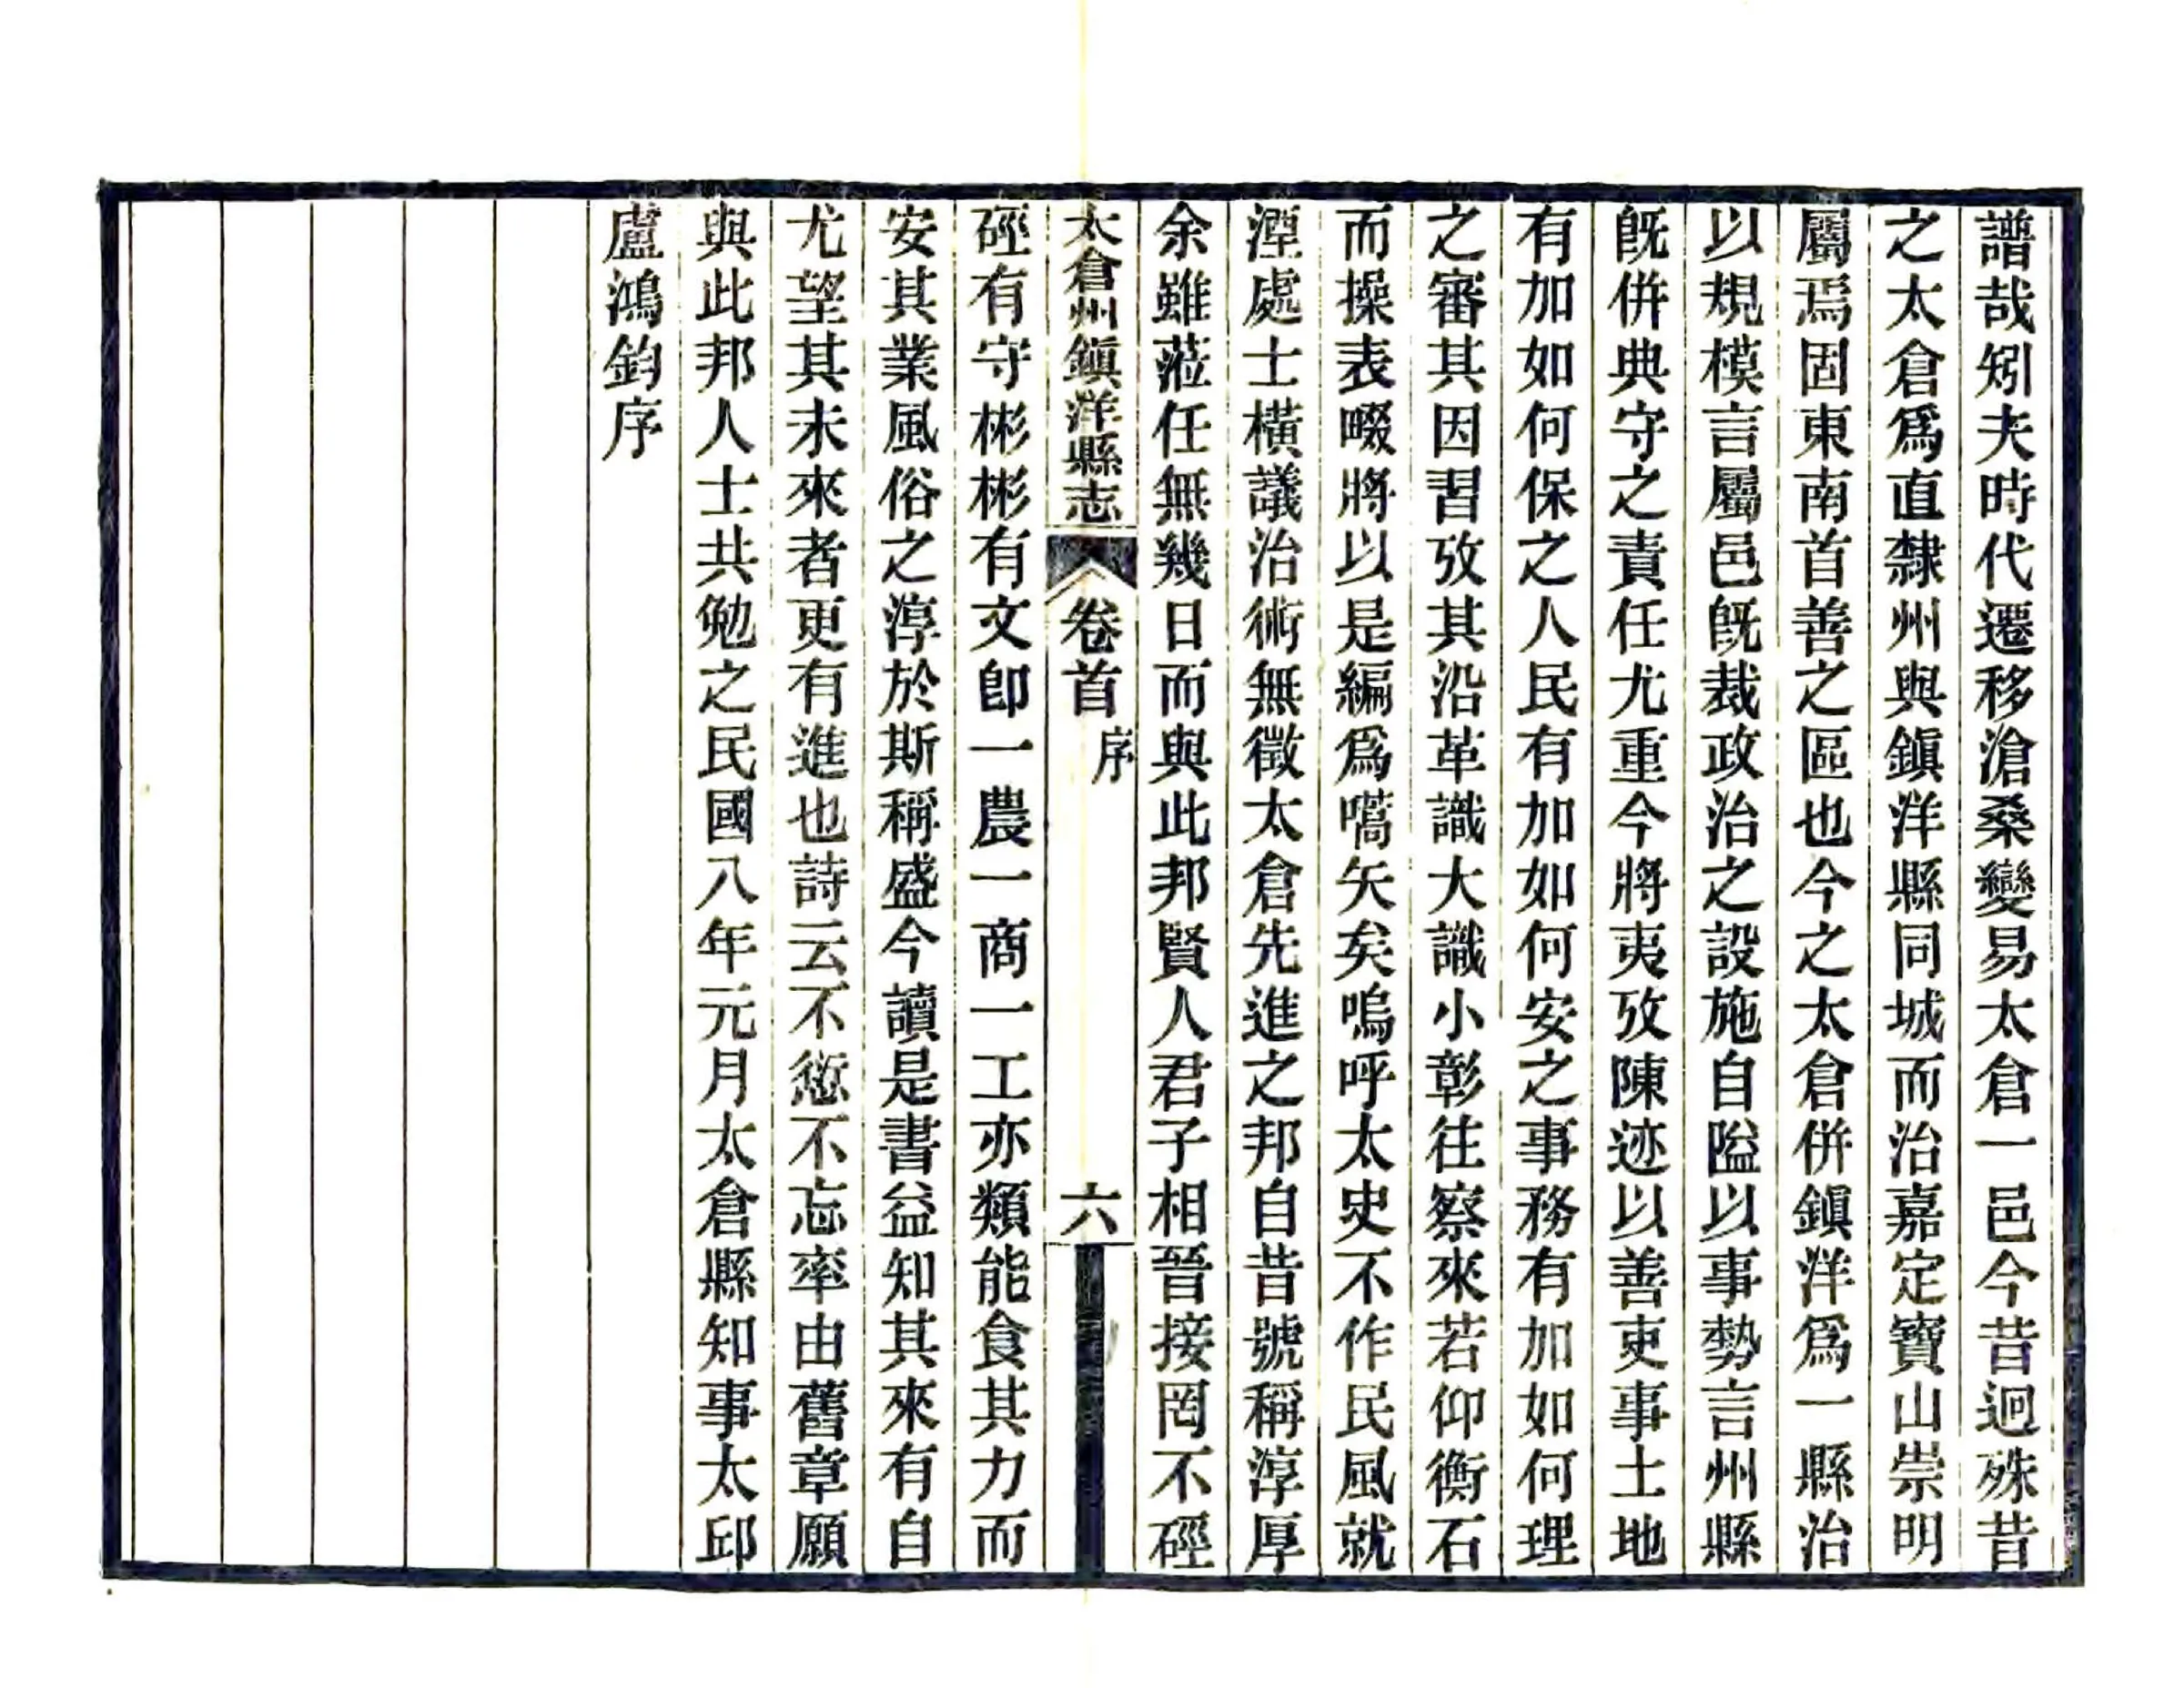 譜哉矧夫時代遷移滄桑變易太倉一邑今昔迥殊昔
之太倉爲直隸州與鎭洋縣同城而治嘉定寶山崇明
屬焉固東南首善之區也今之太倉併鎭洋爲一縣治
以規模言屬邑旣裁政治之設施自隘以事勢言州縣
旣併典守之責任尤重今將夷攷陳迹以善吏事土地
有加如何保之人民有加如何安之事務有加如何理
之審其因習攷其沿革識大識小彰往察來若仰衡石
而操表畷將以是編爲嚆矢矣嗚呼太史不作民風就
湮處士橫議治術無徵太倉先進之邦自昔號稱淳厚
余雖蒞任無幾日而與此邦賢人君子相晉接罔不硜
太倉州鎭洋縣志
卷首
序
六
硜有守彬彬有文卽一農一商一工亦類能食其力而
安其業風俗之淳於斯稱盛今讀是書益知其來有自
尤望其未來者更有進也詩云不愆不忘率由舊章願
與此邦人士共勉之民國八年元月太倉縣知事太邱
盧鴻鈞序